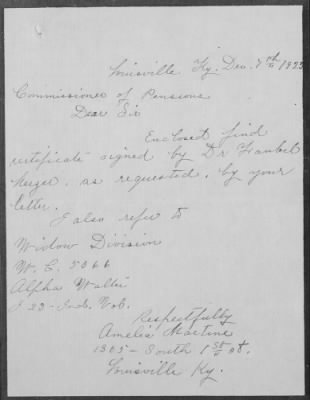 Louisville Ky. Dec. 7th 1922
Commissioner of Pensions
Dear Sir
Enclosed find
certificate signed by Dr
as requested, by your
letter.
I also refer to
Widow Division
W. C. 5066
Alpha Walter
J 23 - Ind. Vol.
Respectfully
Amelia Martine
1305 - South 1st St.
Louisville Ky.